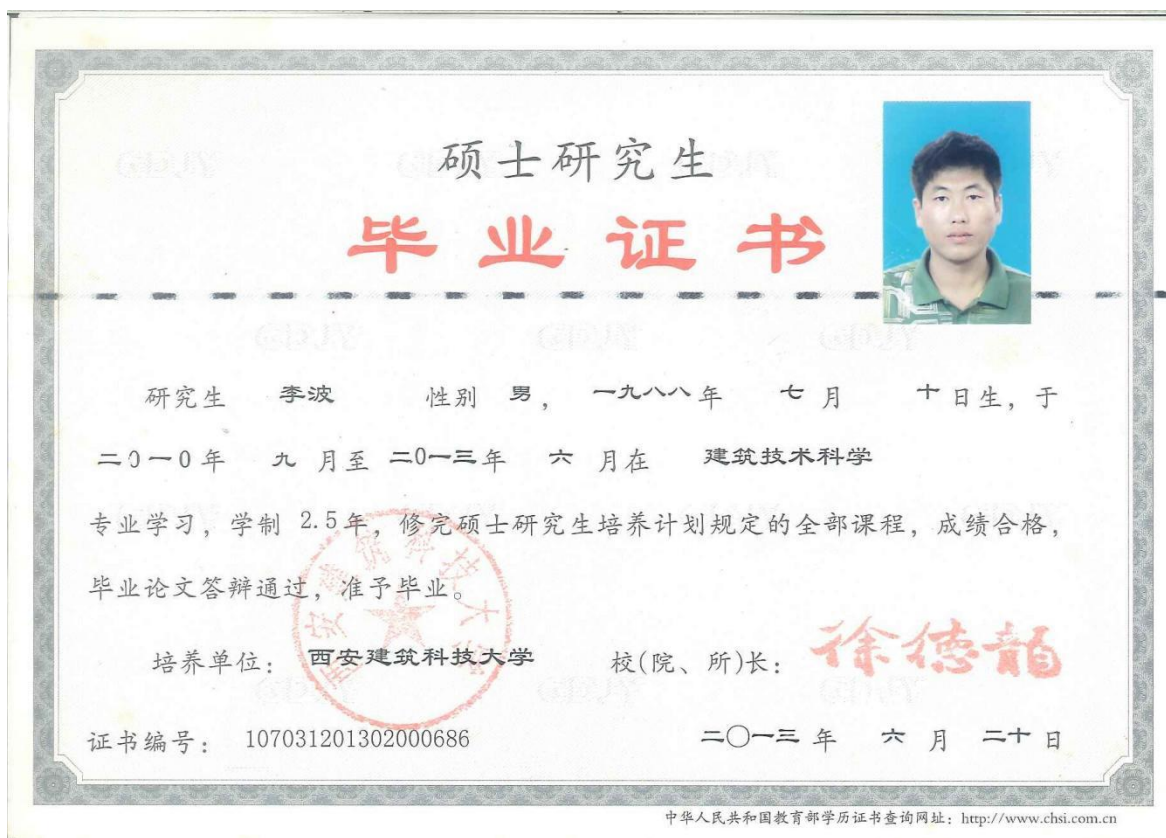 硕士研究生
毕业证书
研究生 李波 性别 男, 一九八八年 七月 十日生, 于
二0一0年 九月至 二0一三年 六月在 建筑技术科学
专业学习, 学制 2.5年, 修完硕士研究生培养计划规定的全部课程, 成绩合格,
毕业论文答辩通过, 准予毕业。
西安建筑科技大学
培养单位: 西安建筑科技大学 校(院、所)长: 徐德龙
证书编号: 107031201302000686 二〇一三年 六月 二十日
中华人民共和国教育部学历证书查询网址: http://www.chsi.com.cn